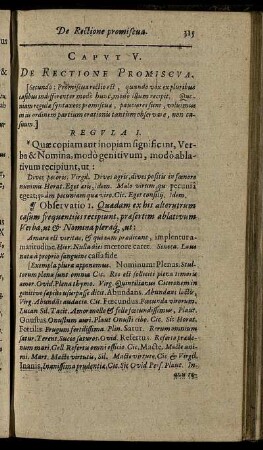 De Rectione promiscua. 325
CAPVT V.
DE RECTIONE PROMISCVA.
[Secundo: Promiscua rectio est, quando vox ex pluribus
casibus indifferenter modo hunc, modo illum recipit,
niam regula syntaxeos promiscua, pauciores sunt, voluimus
in iis ordinem partium orationis tantum observare, non
casuum.]
REGVLA I.
Quæ copiam aut inopiam significant, Ver-
ba & Nomina, modò genitivum, modò abla-
tivum recipiunt, ut:
Dives pecoris. Virgil. Dives agris, dives positis in fœnore
nummis Horat. Eget æris, idem. Malo virum qui pecuniâ
egeat, quàm pecuniam quæ viro. Cic. Eget consilij, Idem.
¶ Observatio 1. Quædam ex his alterutrum
casum frequentiùs recipiunt, præsertim ablativum
Verba, ut & Nomina pleraq, ut:
Amara elt veritas, & quisquis prædicat, implebitur
amaritudine. Hier. Nulla dies mœrore caret. Seneca.
notæ à proprio sanguine
[Exempla plura apponemus. Nominum: Plenus. Stul-
torum plena sunt omnia Cic. Reo elt solicitis plena timoris
amor. Ovid. Plena thymo. Virg. Quintilianus Ciceronem in
genitivo sæpius usurpasse dicit. Abundans. Abundans lactis,
Virg. Abundans audacia Cic. Fœcundus. Fœcunda virorum.
Lucan. Sil. Tacit. Amor melle & felle fœcundissimus, Plaut.
Onustus Onustum auri. Plaut. Onusti cibo. Cic. Sil. Horat.
Fertilis Frugum fertilissima. Plin. Satur. Rerum omnium
satur. Terent. Succo saturos. Ovid. Refertus. Referto præda-
num mari. Gell. Refertus omni officio. Cic. Macte. Macte ani-
mi. Mart. Macte virtutis, Sil. Macte virtute. Cic & Virgil.
Inanis, Inanissima prudentiæ. Cic. Sic Ovid Pers. Plaut. In-